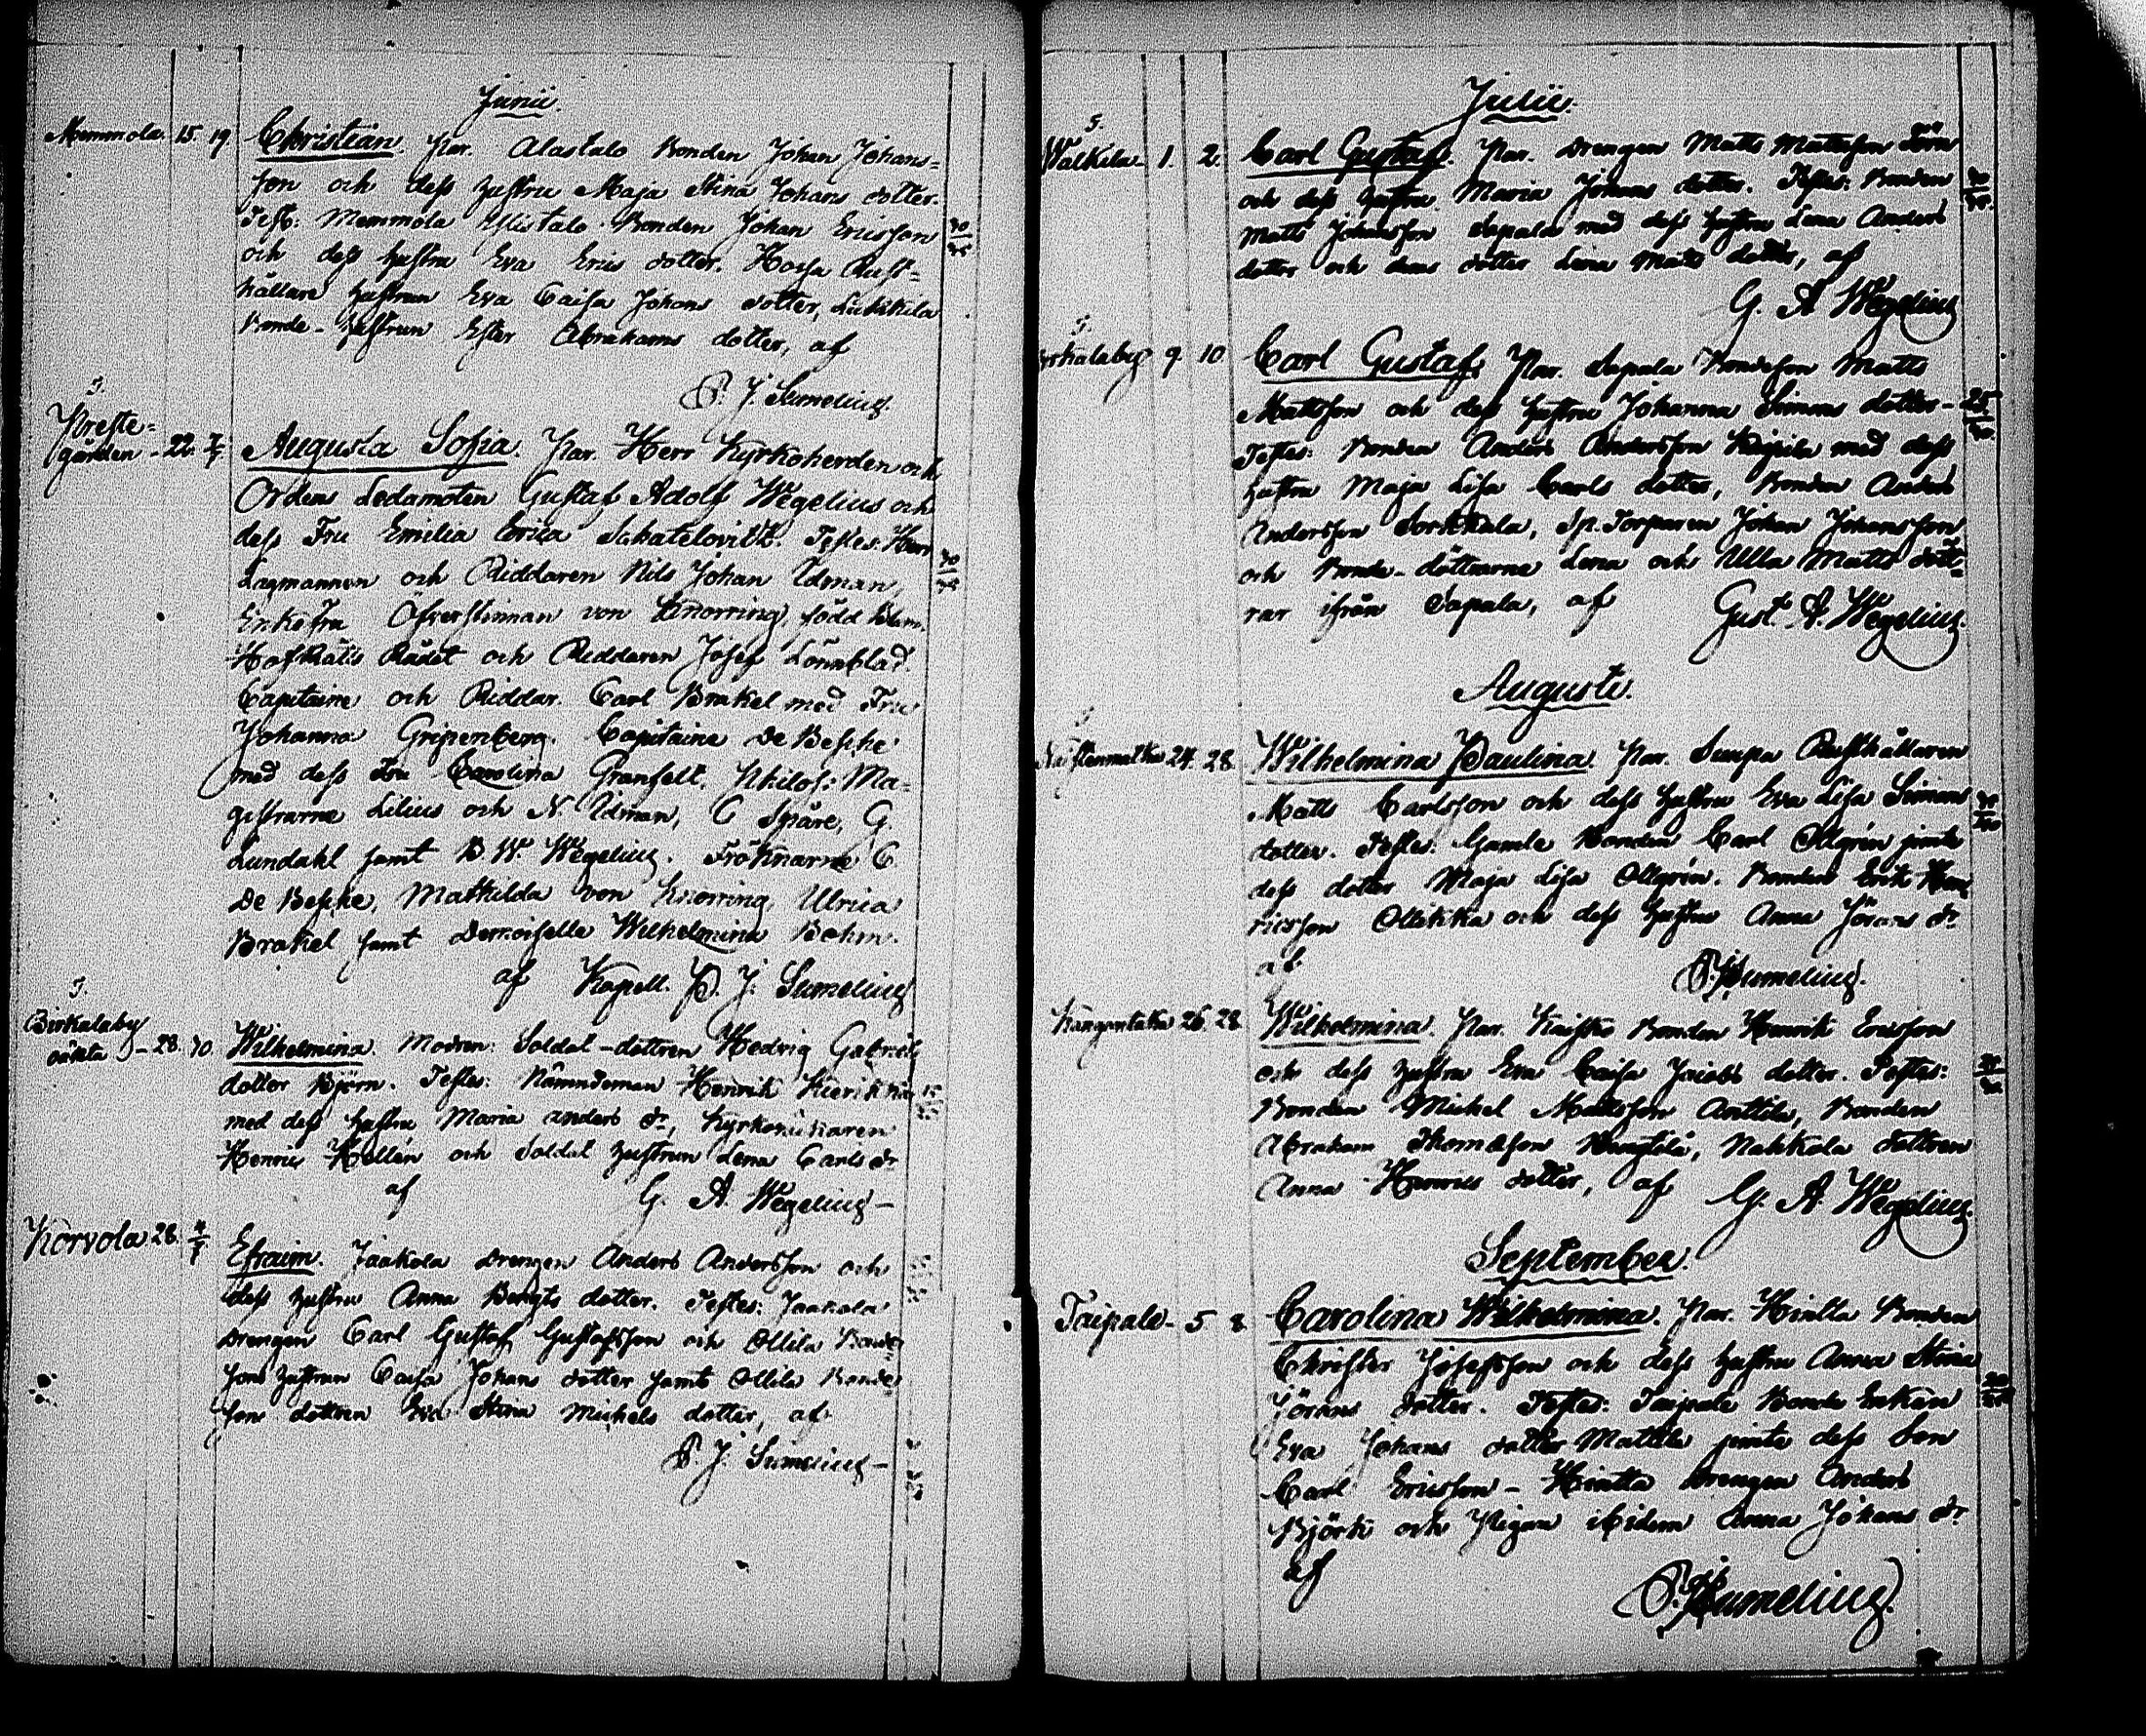 Junii.
Memmola. 15. 19. Christian. Par. Alastalo Bonden Johan Johans=
son och dess hustru Maja Stina Johans dotter.
Test: Memmola Ylistalo Bonden Johan Ericsson 30
och dess hustru Eva Erics dotter. Rust=
hållare hustrun Eva Caisa Johans dotter,
Bonde-hustrun Ester Abrahams dotter, af
P. J. Sumelius.
Preste=
gården - 22. Augusta Sofia. Par. Herr Kyrkoherden och
Ordens Ledamoten Gustaf Adolf Wegelius och
dess Fru Emilia Erica Testes: Herr
Lagmannen och Riddaren Nils Johan Idman,
Enkefru Öfverstinnan von Knorring, född
HofRätts Rådet och Riddaren Josef Lönnblad.
Capitaine och Riddar. Carl Brakel med Fru
Johanna Gripenberg. Capitaine De Besche
med dess Fru Carolina Granfelt. Philos: Ma=
gistrarne Lilius och N. Idman, C Spåre, G.
Lundahl samt B. W. Wegelius. Fröknarne C
De Besche, Mathilda von Knorring, Ulrica
Brakel samt Demoiselle Wilhelmina Bohm.
af Kapell. P. J. Sumelius
Birkalaby
oäkta - 28. 30. Wilhelmina. Modren: Soldat-dottren Hedvig Gabriels
dotter Björn. Testes: Nämndeman Henrik
med dess hustru Maria Anders dr, Kyrkoväktaren
Henric Hellén och Soldat hustrun Lena Carls dr
af G. A. Wegelius -
Korvola 28. Efraim. Jaakola Drengen Anders Andersson och
dess hustru Anna Bengts dotter. Testes: Jaakola
Drengen Carl Gustaf Gustafsson och Ollila Bonde
sons hustrun Caisa Johans dotter samt Ollila Bonde
son dottren Eva Stina Michels dotter, af
P. J. Sumelius -
Julii.
Walkila 1. 2. Carl Gustaf. Par. Drengen Matts Mattsson
och dess hustru Maria Johans dotter. Testes: Bonden
Matts Johansson Sapala med dess hustru Lena Anders
dotter och dess dotter Lena Matts dotter, af
G. A Wegelius
9 10 Carl Gustaf. Par. Sapala Bondeson Matts
Mattsson och dess hustru Johanna Simons dotter - 25
Testes: Bonden Anders Andersson med dess
hustru Maja Lisa Carls dotter, Bonden Anders
Andersson Sorkkala, Sp. Torparen Johan Johansson
och Bonde-döttrarne Lena och Ulla Matts dött=
rar ifrån Sapala, af Gust. A. Wegelius.
Augusti.
24. 28. Wilhelmina Paulina. Par. Rusthållaren
Matts Carlsson och dess hustru Eva Lisa Simons
dotter. Testes: Gamle Bonden Carl Ollgrén jemte
dess dotter Maja Lisa Ollgrén. Bonden Erik Hen
ricsson Ollikka och dess hustru Anna Jörans dr
af P. J. Sumelius.
Kangentaka 26. 28. Wilhelmina. Par. Bonden Henrik Ericsson
och dess hustru Eva Caisa Jacobs dotter. Testes:
Bonden Michel Mattsson Anttila, Bonden
Abraham Thomasson Nakkola dottren
Anna Henrics dotter, af G. A Wegelius.
September.
Taipale - 5 8. Carolina Wilhelmina. Par. Hintta Bonden
Christer Josefsson och dess hustru Anna Stina
Jörans dotter. Testes: Taipale Bonde Enkan
Eva Johans dotter Mattila jemte dess Son
Carl Ericsson - Hintta Drengen Anders
Björk och Pigan ibidem Anna Johans dr
af
P. J. Sumelius.